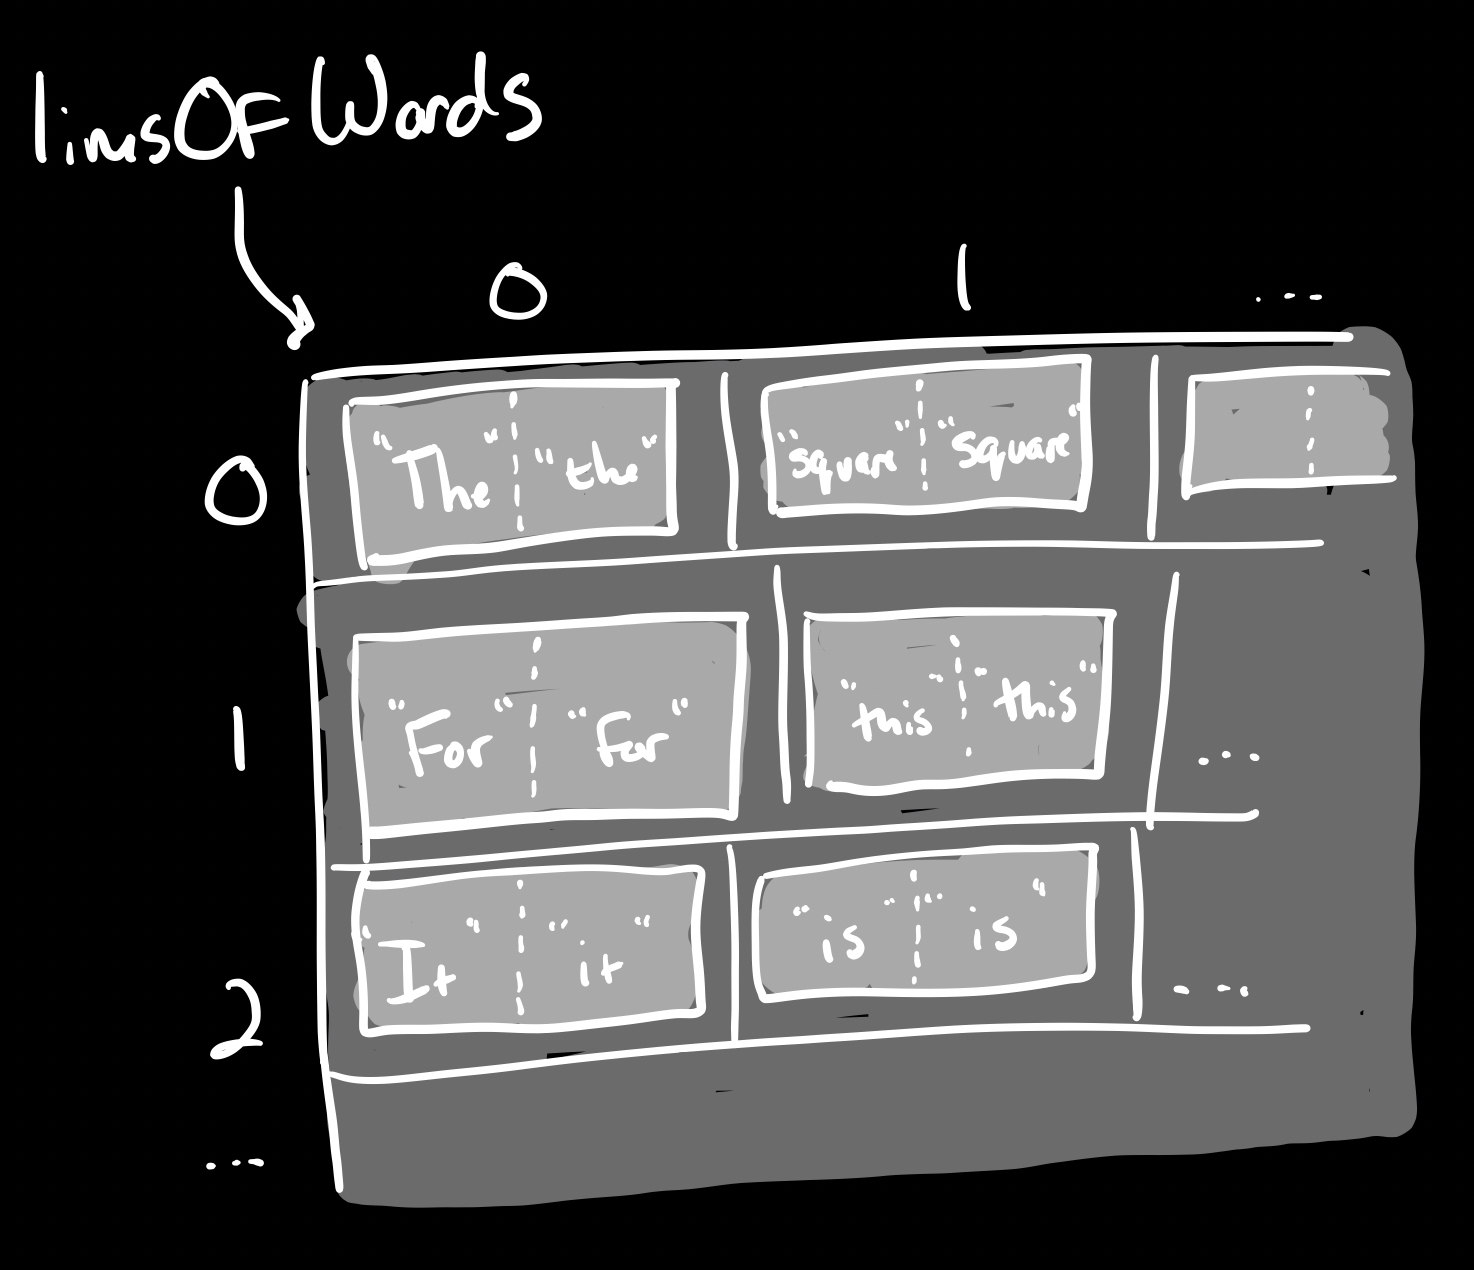 linesOfWords
0 1 ...
0 "The" "the" "square" "square"
1 "For" "for" "this" "this" ...
2 "It" "it" "is" "is" ...
...